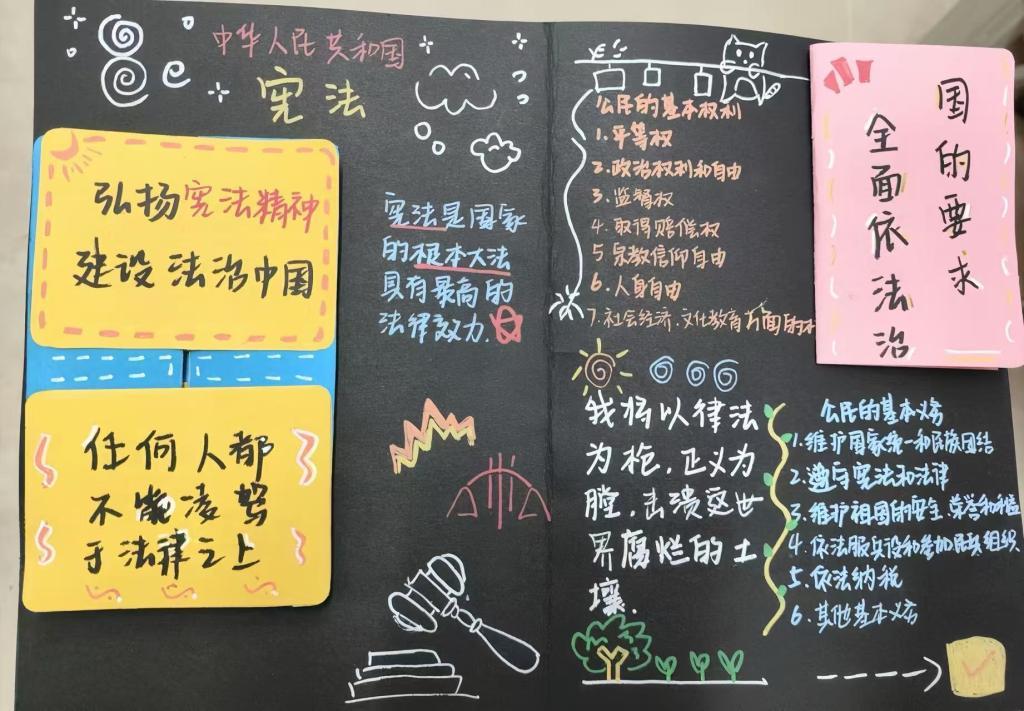 中华人民共和国
宪法
弘扬宪法精神
建设法治中国
任何人都
不能凌驾
于法律之上
宪法是国家
的根本大法
具有最高的
法律效力.
公民的基本权利
1.平等权
2.政治权利和自由
3.监督权
4.取得赔偿权
5.宗教信仰自由
6.人身自由
7.社会经济.文化教育方面的
国的要求
全面依法治
我将以律法
为枪,正义为
膛,击溃这世
界腐烂的土
壤.
公民的基本义务
1.维护国家统一和民族团结
2.遵守宪法和法律
3.维护祖国的安全.荣誉和利益
4.依法服兵役和参加民兵组织
5.依法纳税
6.其他基本义务